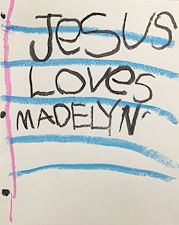 JESUS
LOVES
MADELYN